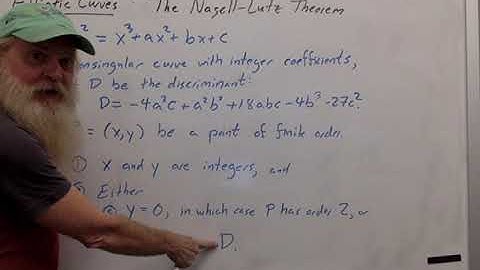 Elliptic Curves: The Nagell-Lutz Theorem
² = x³+ax²+bx+c
nonsingular curve with integer coefficients,
D be the discriminant:
D=-4a³c+a²b²+18abc-4b³-27c².
= (x,y) be a point of finite order.
① x and y are integers, and
Either
ⓐ y=0, in which case P has order 2, or
D.